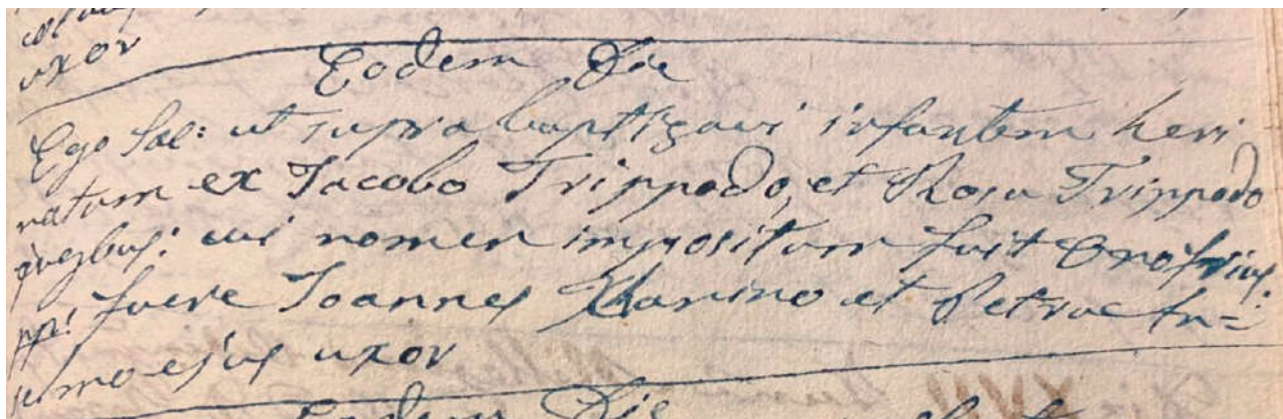 uxor
Eodem Die
Ego Sac: ut supra baptizavi infantem heri
natum ex Jacobo Trippodo, et Rosa Trippodo
jugbus: cui nomen impositum fuit Onofrius:
pp: fuere Joannes Marino et Petrae
ejus uxor
Eodem Die